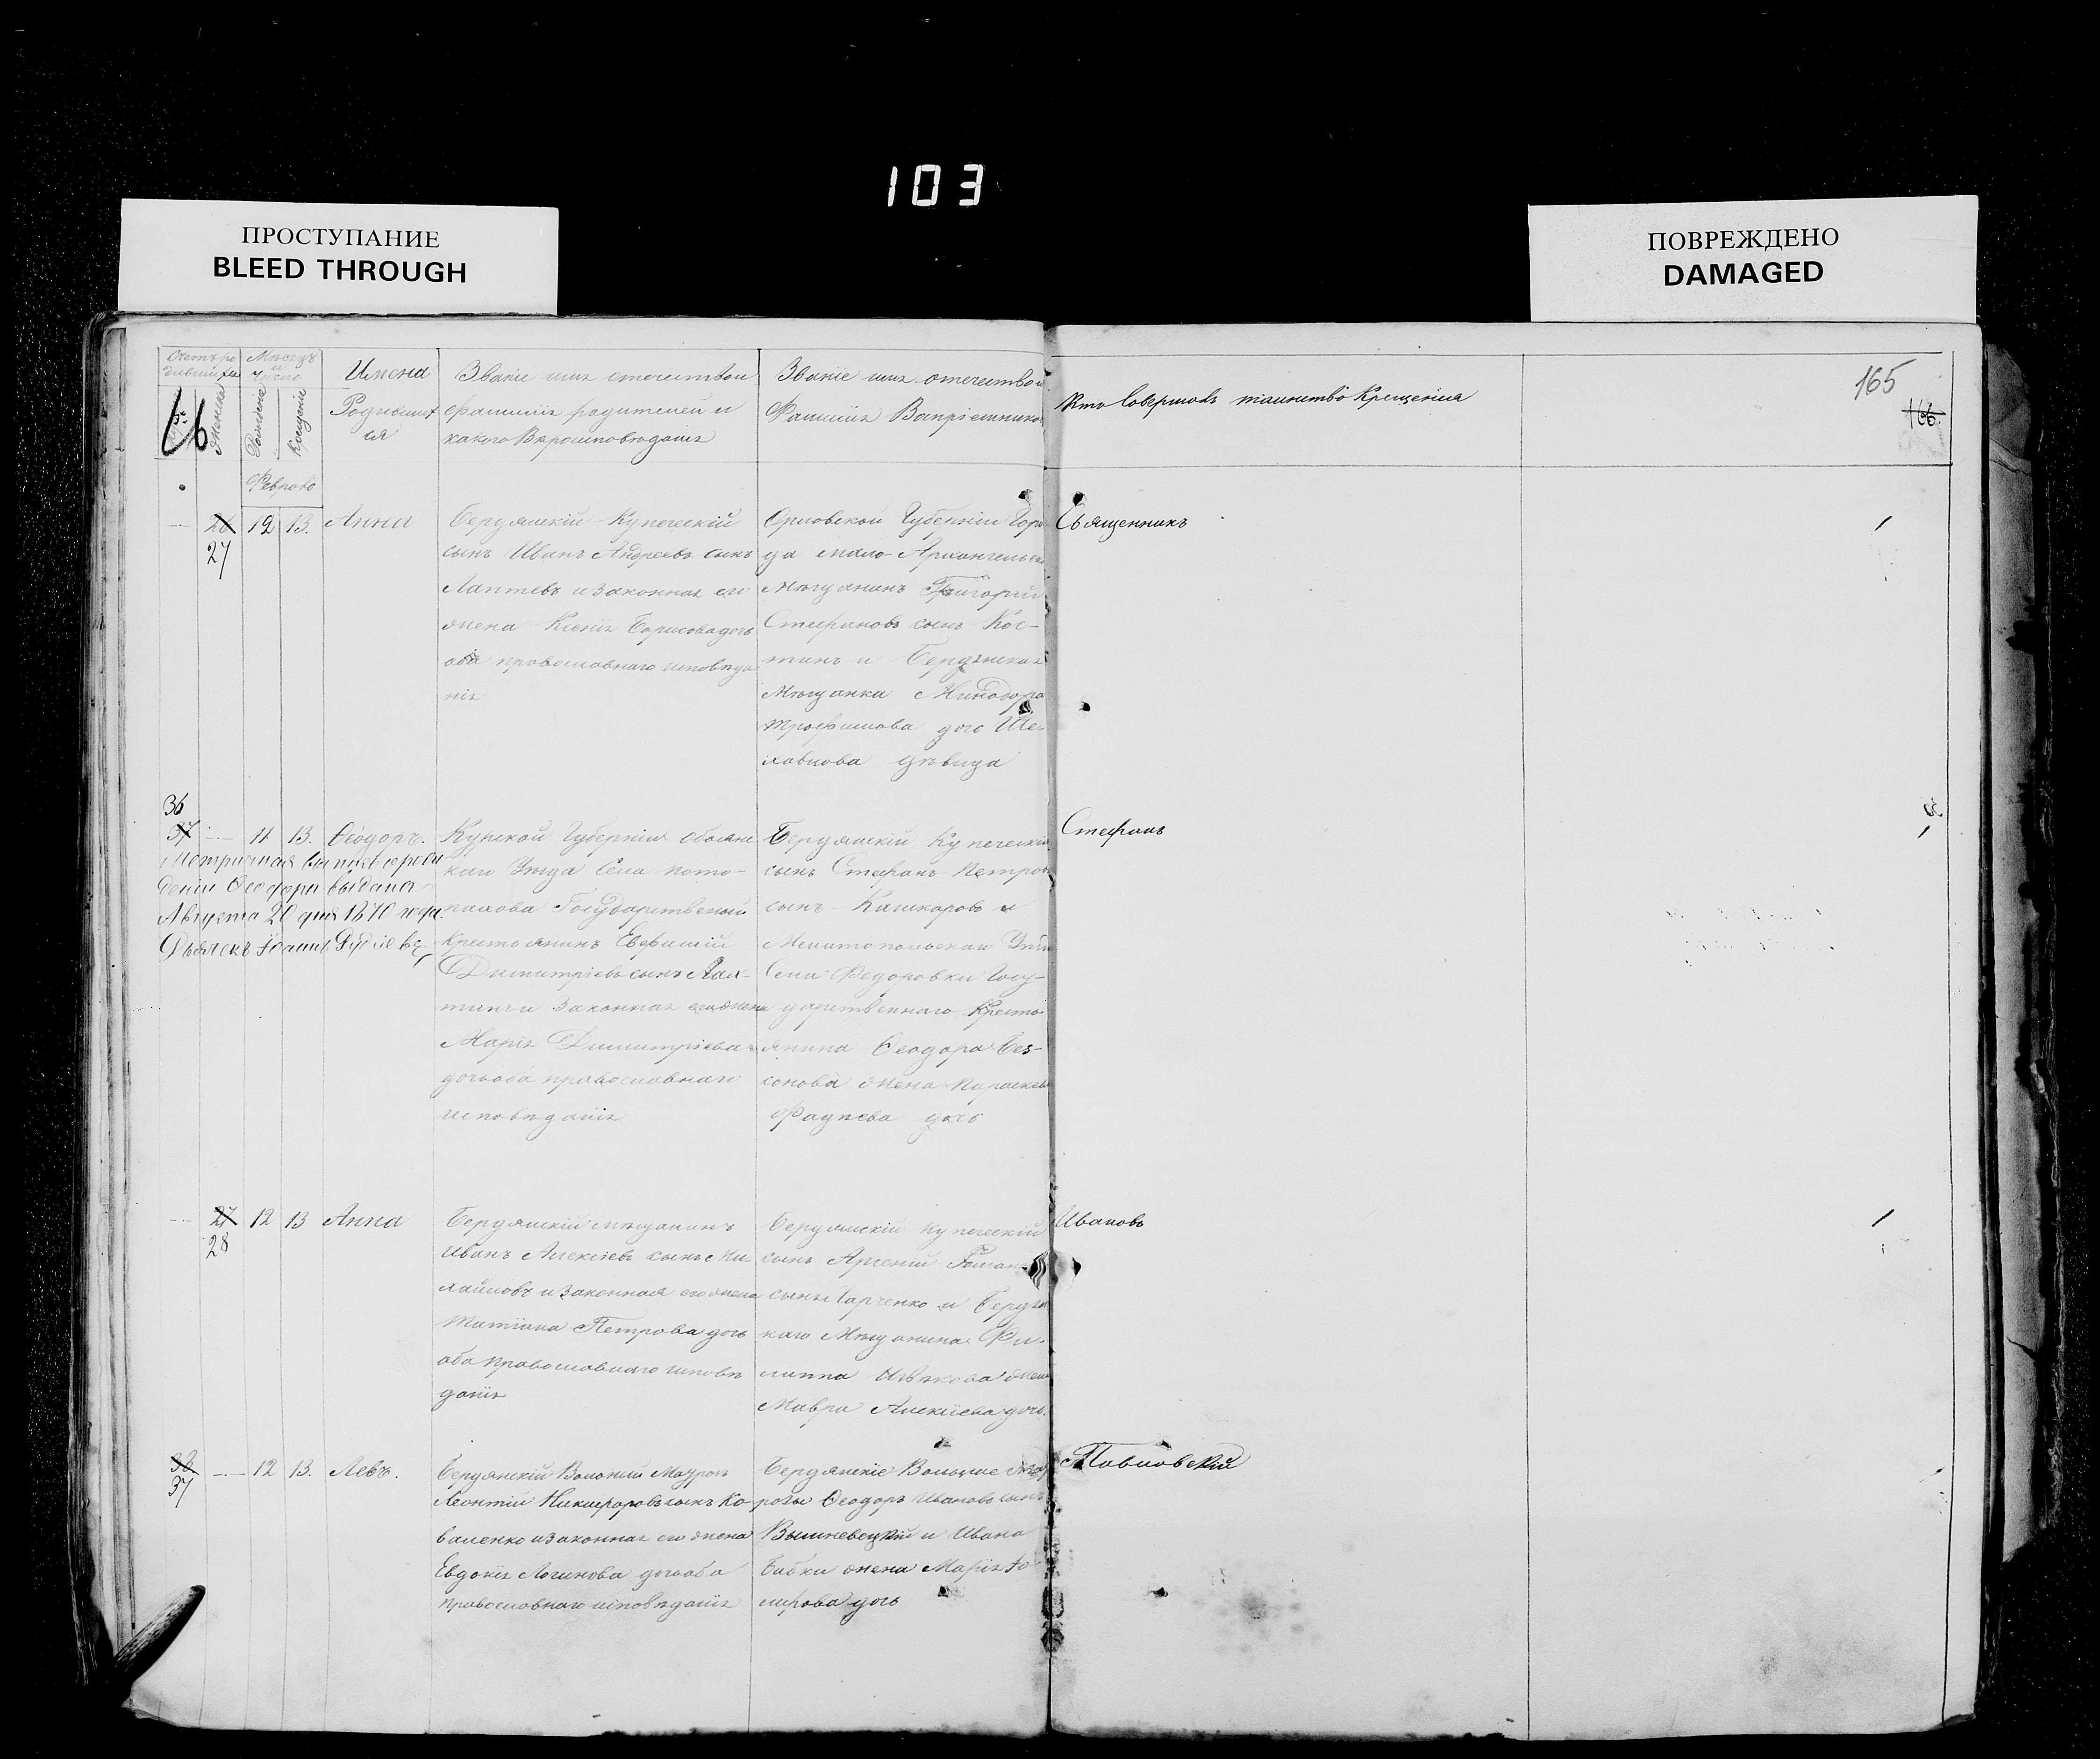 103
ПРОСТУПАНИЕ
BLEED THROUGH
ПОВРЕЖДЕНО
DAMAGED
Мѣсяцъ
и
число
Имена
Родившихся
Званіе имя отчество и
фамилія родителей и
какого Вѣроисповѣданія
Званіе имя отчество и
Фамилія Воспріемниковъ
Кто Совершалъ таинство Крещенія
165
166.
Женска
Рожденія
Крещенія
Февраль
26
27
12
13.
Анна
Бердянскій Купеческій
сынъ Иванъ Андреевъ сынъ
Лаптевъ и законная его
жена Ксенія Борисова дочь
оба православнаго исповѣда
нія
Орловской Губерніи Горо
да мало-Архангельска
Мѣщанинъ Григорій
Стефановъ сынъ Кос-
тинъ и Бердянская
Мѣщанка Минодора
Трофимова дочь
дѣвица
Священникъ
36
37
11
13.
Ѳеодоръ.
Метрическая выпись о рож
деніи Ѳеодора выдана
Августа 20 дня 1870 года.
Дьячекъ Іоаннъ
Курской Губерніи Обоянс
каго Уѣзда Села
Государственный
крестьянинъ Евфимій
Димитріевъ сынъ
и законная его жена
Марія Димитріева
дочь оба православнаго
исповѣданія
Бердянскій Купеческій
сынъ Стефанъ Петровъ
сынъ Кашкаровъ и
Мелитопольскаго Уѣзда
Села Федоровки Госу-
дарственнаго Кресть
янина Ѳеодора Без-
сонова жена Параскева
дочь
Стефанъ
27
28
12
13
Анна
Бердянскій мѣщанинъ
Иванъ Алексѣевъ сынъ Ми
хайловъ и законная его жена
Татіана Петрова дочь
оба православнаго исповѣ
данія
Бердянскій Купеческій
сынъ Арсеній Роман
сынъ Харченко и Бердянс
каго Мѣщанина Фи-
липпа жена
Мавра Алексѣева дочь.
Ивановъ
38
37
12
13.
Левъ.
Бердянскій Вольный Матросъ
Леонтій Никифоровъ сынъ Ко-
валенко и законная его жена
Евдокія Логинова дочь оба
православнаго исповѣданія
Бердянскіе Вольные Мат
росы Ѳеодоръ Ивановъ сынъ
Вышневецкій и Ивана
Бабки жена Марія
дочь
Павловскій